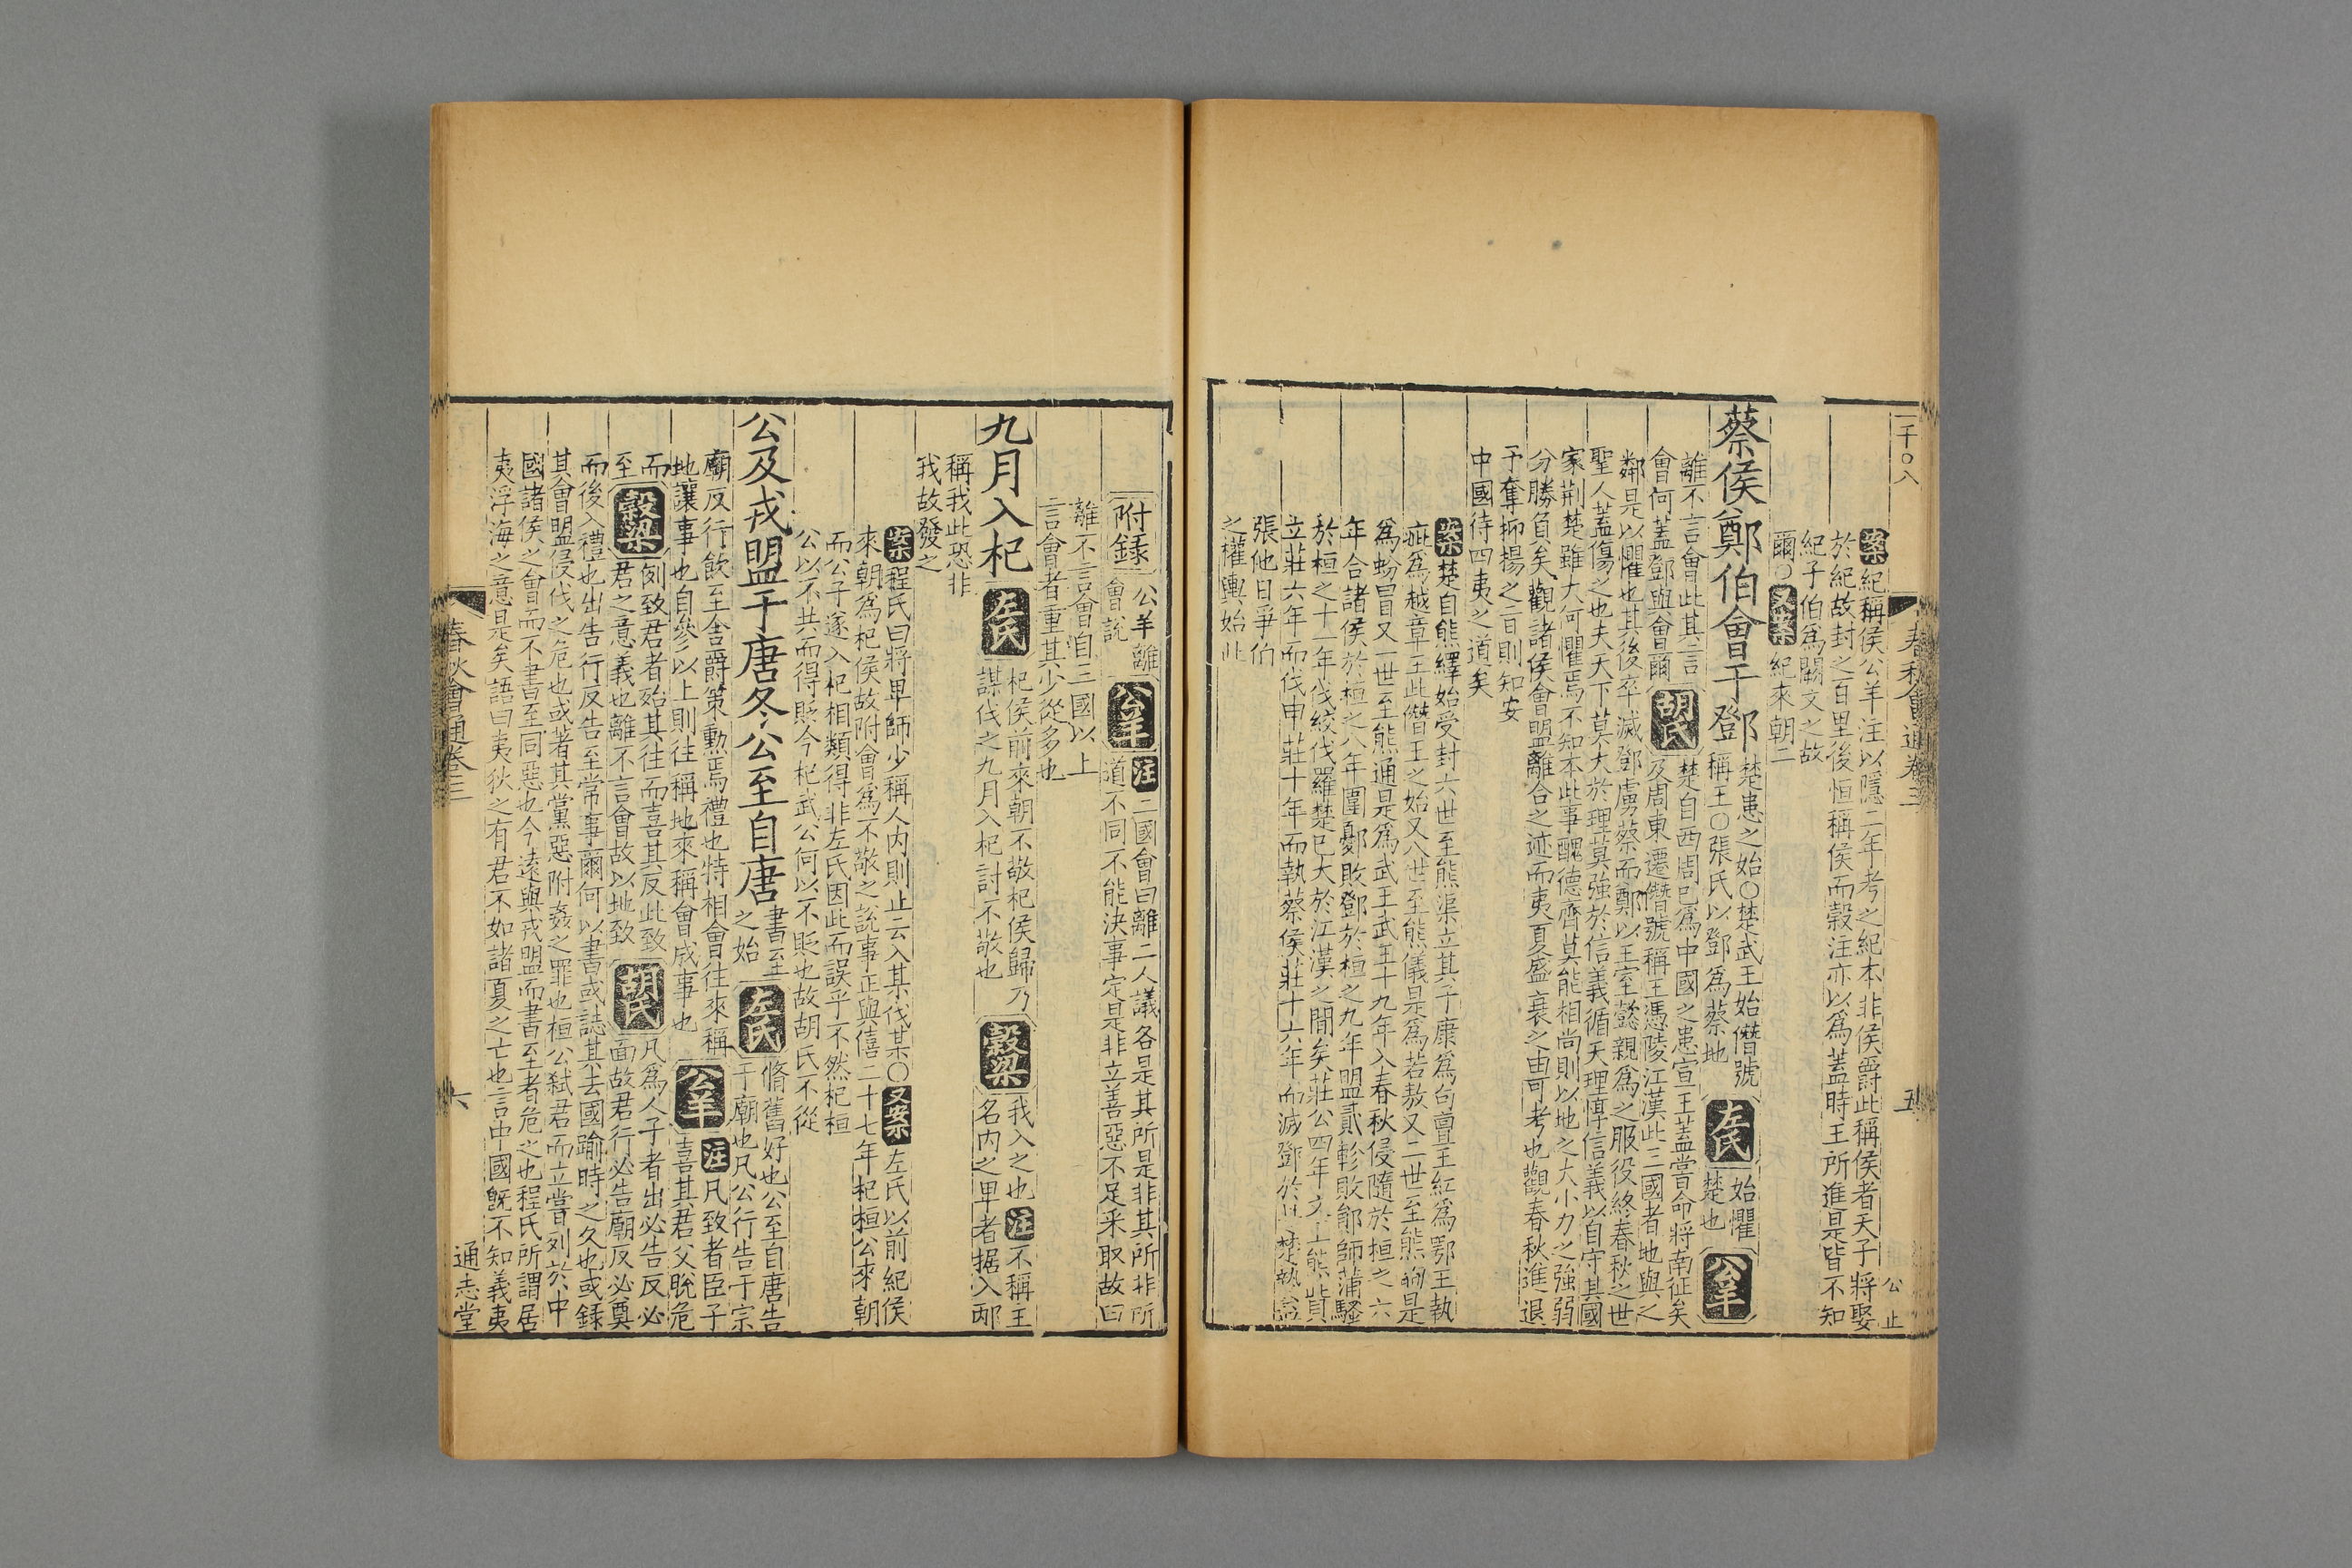 一千〇八
春秋會通卷三
五
公止
案紀稱侯公羊注以隱二年考之紀本非侯爵此稱侯者天子將娶
於紀故封之百里後恒稱侯而穀注亦以為蓋時王所進是皆不知
紀子伯爲闕文之故
爾〇又案紀來朝二
蔡侯鄭伯會于鄧
楚患之始〇楚武王始僭號
稱王〇張氏以鄧爲蔡地
左氏
始懼
楚也
公羊
離不言會此其言
會何蓋鄧與會爾
胡氏
楚自西周已爲中國之患宣王蓋嘗命將南征矣
及周東遷僭號稱王憑陵江漢此三國者地與之
鄰是以懼也其後卒滅鄧虜蔡而鄭以王室懿親爲之服役終春秋之世
聖人蓋傷之也夫天下莫大於理莫強於信義循天理惇信義以自守其國
家荆楚雖大何懼焉不知本此事醜德齊莫能相尚則以地之大小力之強弱
分勝負矣觀諸侯會盟離合之迹而夷夏盛衰之由可考也觀春秋進退
予奪抑揚之言則知安
中國待四夷之道矣
案楚自熊繹始受封六世至熊渠立其子康爲句亶王紅爲鄂王執
疵爲越章王此僭王之始又八世至熊儀是爲若敖又二世至熊昫是
爲蚡冒又一世至熊通是爲武王武王十九年入春秋侵隨於桓之六
年合諸侯於桓之八年圍鄾敗鄧於桓之九年盟貳軫敗鄖師蒲騷
於桓之十一年伐絞伐羅楚已大於江漢之間矣莊公四年文王熊貲
立莊六年而伐申莊十年而執蔡侯莊十六年而滅鄧於
張他日爭伯
之權輿始此
附錄
公羊離
會說
公羊
注
二國會曰離二人議各是其所是非其所非所
道不同不能決事定是非立善惡不足采取故曰
離不言會自三國以上
言會者重其少從多也
九月入杞
左氏
杞侯前來朝不敬杞侯歸乃
謀伐之九月入杞討不敬也
穀梁
我入之也注不稱主
名内之卑者据入邴
稱我此恐非
我故發之
案程氏曰將卑師少稱人内則止云入某伐某〇又案左氏以前紀侯
來朝爲杞侯故附會爲不敬之說事正與僖二十七年杞桓公來朝
而公子遂入杞相類得非左氏因此而誤乎不然杞桓
公以不共而得貶今杞武公何以不貶也故胡氏不從
公及戎盟于唐冬公至自唐
書至
之始
左氏
脩舊好也公至自唐告
于廟也凡公行告于宗
廟反行飲至舍爵策勳焉禮也特相會往來稱
地讓事也自參以上則往稱地來稱會成事也
公羊
注凡致者臣子
喜其君父脫危
而
至
穀梁
例致君者殆其往而喜其反此致
君之意義也離不言會故以地致
胡氏
凡爲人子者出必告反必
面故君行必告廟反必奠
而後入禮也出告行反告至常事爾何以書或誌其去國踰時之久也或錄
其會盟侵伐之危也或著其黨惡附姦之罪也桓公弑君而立嘗列於中
國諸侯之會而不書至同惡也今遠與戎盟而書至者危之也程氏所謂居
夷浮海之意是矣語曰夷狄之有君不如諸夏之亡也言中國旣不知義夷
春秋會通卷三
六
通志堂